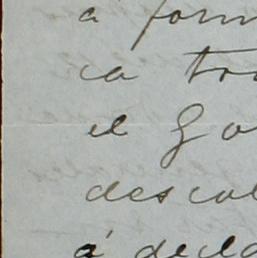 a form
ca tro
el Go
descol
á decla